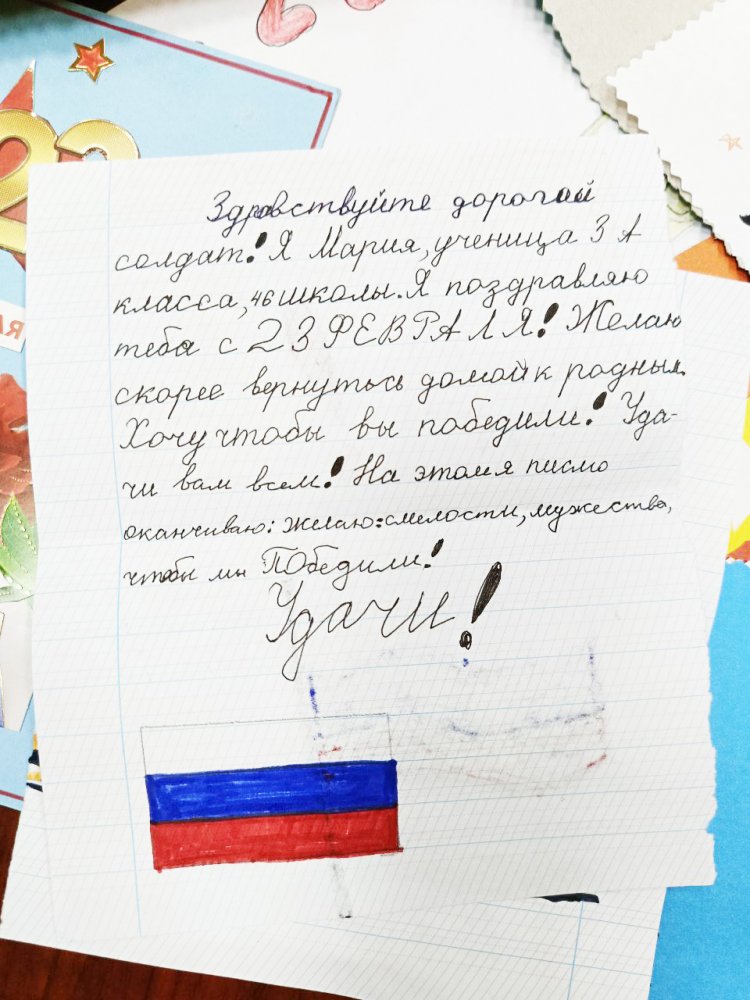 23
Здравствуйте дорогой
солдат! Я Мария, ученица 3 А
класса, 46 школы. Я поздравляю
тебя с 23 ФЕВРАЛЯ! Желаю
скорее вернуться домой к родным.
Хочу чтобы вы победили! Уда-
чи вам всем! На этом я писмо
оканчиваю: желаю: смелости, мужества,
чтобы мы ПОбедили!
Удачи!